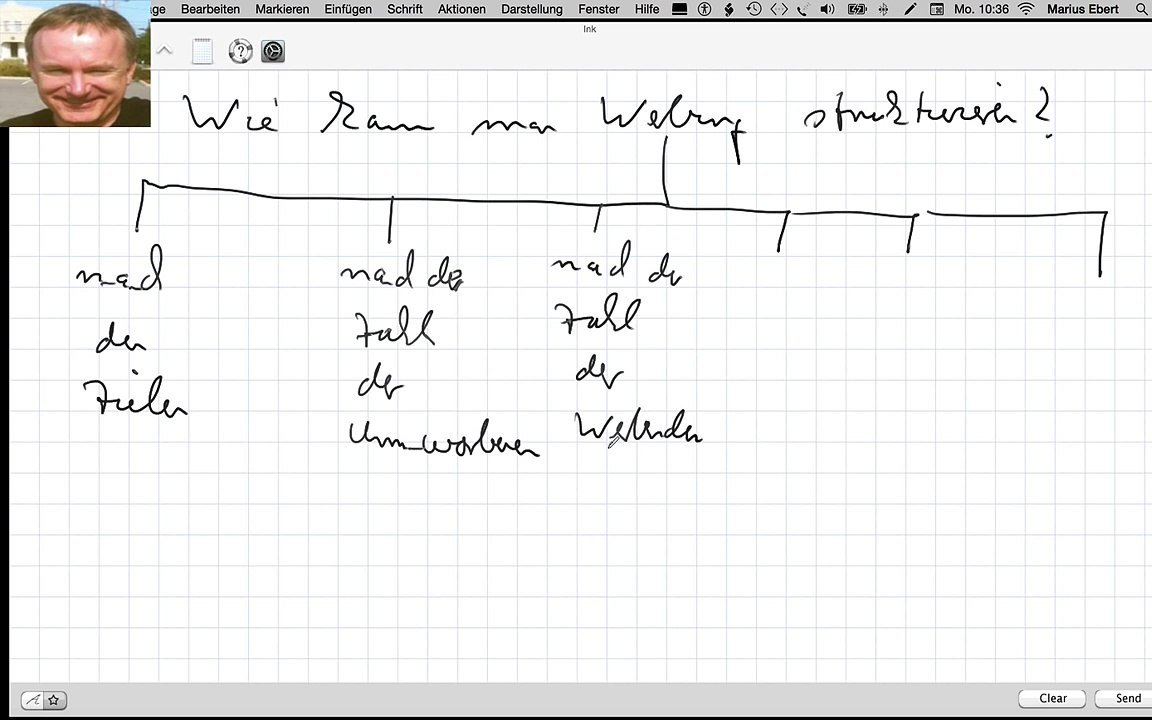 ge Bearbeiten Markieren Einfügen Schrift Aktionen Darstellung Fenster Hilfe Mo. 10:36 Marius Ebert
Ink
Wie kann man Werbung strukturieren?
nach
den
Zielen
nach der
Zahl
der
Umworbenen
nach der
Zahl
der
Werbenden
Clear Send